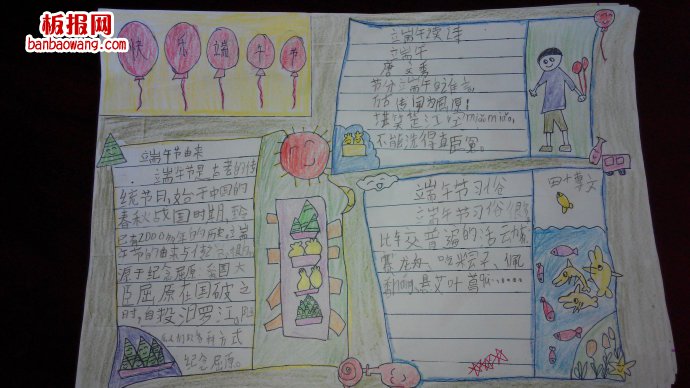 板报网
banbaowang.com
快乐端午节
端午读诗
端午
唐 文秀
节分端午自谁言,
万古传闻为屈原!
堪笑楚江空miǎomiǎo,
不能洗得直臣冤。
端午节由来
端午节是古老的传
统节日,始于中国的
春秋战国时期,至今
已有2000多年的历史。端
午节的由来与传
源于纪念屈原 爱国大
臣屈原在国破之
时,自投汨罗江
人们以各种方式
纪念屈原。
端午节习俗
端午节习俗很多
比较普遍的活动有
赛龙舟、吃粽子、佩
香囊、悬艾叶菖
四(1)